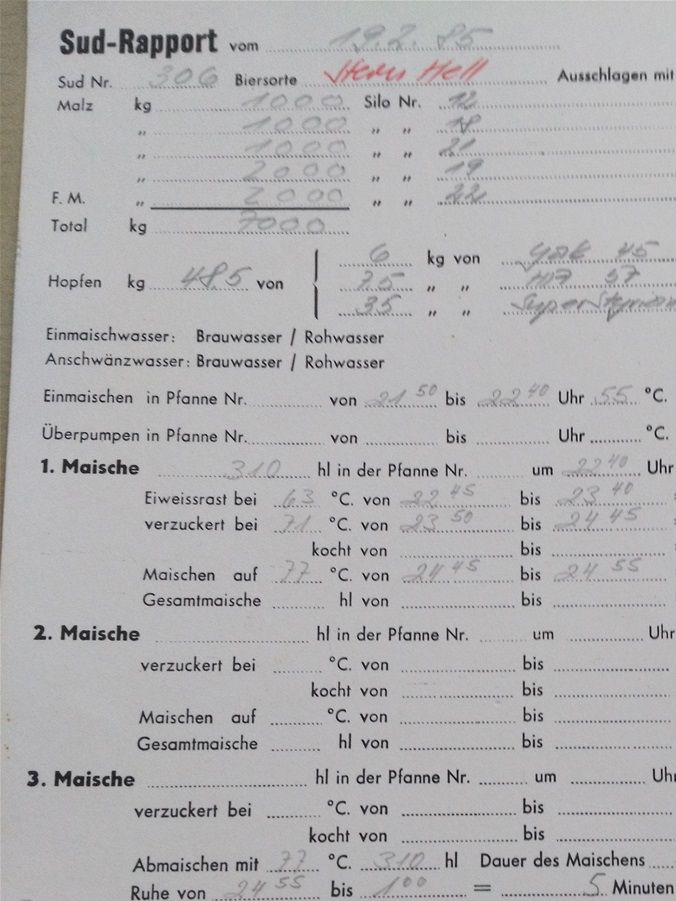 Sud-Rapport vom 19.2.85
Sud Nr. 306 Biersorte Stern Hell Ausschlagen mit
Malz kg 1000 Silo Nr. 12
„ 1000 „ „ 18
„ 1000 „ „ 21
„ 2000 „ „ 19
F. M. „ 2000 „ „ 22
Total kg 7000
6 kg von 45
Hopfen kg 48.5 von 7.5 „ „ 57
35 „ „ Super
Einmaischwasser: Brauwasser / Rohwasser
Anschwänzwasser: Brauwasser / Rohwasser
Einmaischen in Pfanne Nr. von 21 50 bis 22 40 Uhr 55 °C.
Überpumpen in Pfanne Nr. von bis Uhr °C.
1. Maische 310 hl in der Pfanne Nr. um 22 40 Uhr
Eiweissrast bei 63 °C. von 22 45 bis 23 40
verzuckert bei 71 °C. von 23 50 bis 24 45
kocht von bis
Maischen auf 77 °C. von 24 45 bis 24 55
Gesamtmaische hl von bis
2. Maische hl in der Pfanne Nr. um Uhr
verzuckert bei °C. von bis
kocht von bis
Maischen auf °C. von bis
Gesamtmaische hl von bis
3. Maische hl in der Pfanne Nr. um Uhr
verzuckert bei °C. von bis
kocht von bis
Abmaischen mit 77 °C. 310 hl Dauer des Maischens
Ruhe von 24 55 bis 1 00 = 5 Minuten